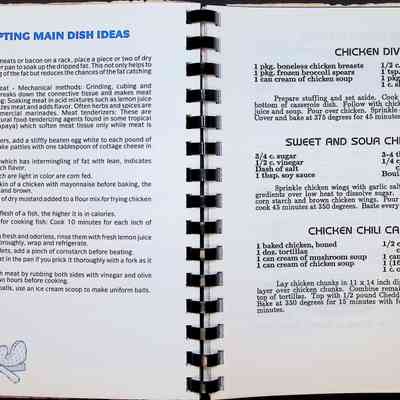 PTING MAIN DISH IDEAS
meats or bacon on a rack, place a piece or two of dry
er pan to soak up the dripped fat. This not only helps to
g of the fat but reduces the chances of the fat catching
eat - Mechanical methods: Grinding, cubing and
breaks down the connective tissue and makes meat
g: Soaking meat in acid mixtures such as lemon juice
izes meat and adds flavor. Often herbs and spices are
mmercial marinades. Meat tenderizers: These are
ural food tenderizing agents found in some tropical
apaya) which soften meat tissue only while meat is
ers, add a stiffly beaten egg white to each pound of
ake patties with one tablespoon of cottage cheese in
which has intermingling of fat with lean, indicates
ch flavor.
ch are light in color are corn fed.
kin of a chicken with mayonnaise before baking, the
and brown.
of dry mustard added to a flour mix for frying chicken
flesh of a fish, the higher it is in calories.
for cooking fish: Cook 10 minutes for each inch of
fresh and odorless, rinse them with fresh lemon juice
oroughly, wrap and refrigerate.
lets, add a pinch of cornstarch before beating.
at in the pan if you prick it thoroughly with a fork as it
h meat by rubbing both sides with vinegar and olive
wo hours before cooking.
balls, use an ice cream scoop to make uniform balls.
CHICKEN DIV
1 pkg. boneless chicken breasts 1/2 c.
1 pkg. frozen broccoli spears 1 tsp.
1 can cream of chicken soup 1 pkg.
1 c. s
Prepare stuffing and set aside. Cook
bottom of casserole dish. Follow with chick
juice and soup. Pour over chicken. Top
Cover and bake at 375 degrees for 45 minutes
SWEET AND SOUR CHI
3/4 c. sugar 3-4 t
1/2 c. vinegar 1/4 c
Dash of salt c
1 tbsp. soy sauce Boui
Sprinkle chicken wings with garlic salt
gredients over low heat to dissolve sugar.
corn starch and brown chicken wings. Pour
cook 45 minutes at 350 degrees. Baste every
CHICKEN CHILI CA
1 baked chicken, boned 1/2 c
1 doz. tortillas c
1 can cream of mushroom soup 1 can
1 can cream of chicken soup 1 (16
1 c. o
Lay chicken chunks in 11 x 14 inch di
layer over chicken chunks. Combine remai
top of tortillas. Top with 1/2 pound Chedd
Bake at 350 degrees for 15 minutes with fo